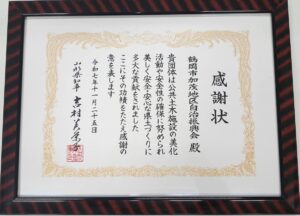 感謝状
鶴岡市加茂地区自治振興会 殿
貴団体は公共土木施設の美化
活動や安全性の確保に努められ
美しく安全・安心な県土づくりに
多大な貢献をされました
ここにその功績をたたえ感謝の
意を表します
令和七年十一月二十五日
山形県知事 吉村美栄子